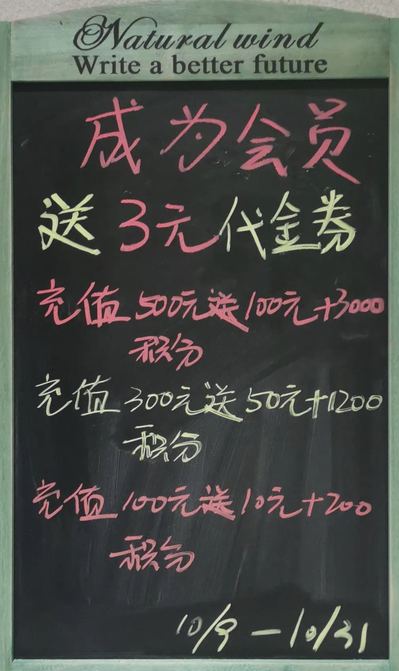 Natural wind
Write a better future
成为会员
送3元代金券
充值500元送100元+3000
积分
充值300元送50元+1200
积分
充值100元送10元+200
积分
10/9-10/31